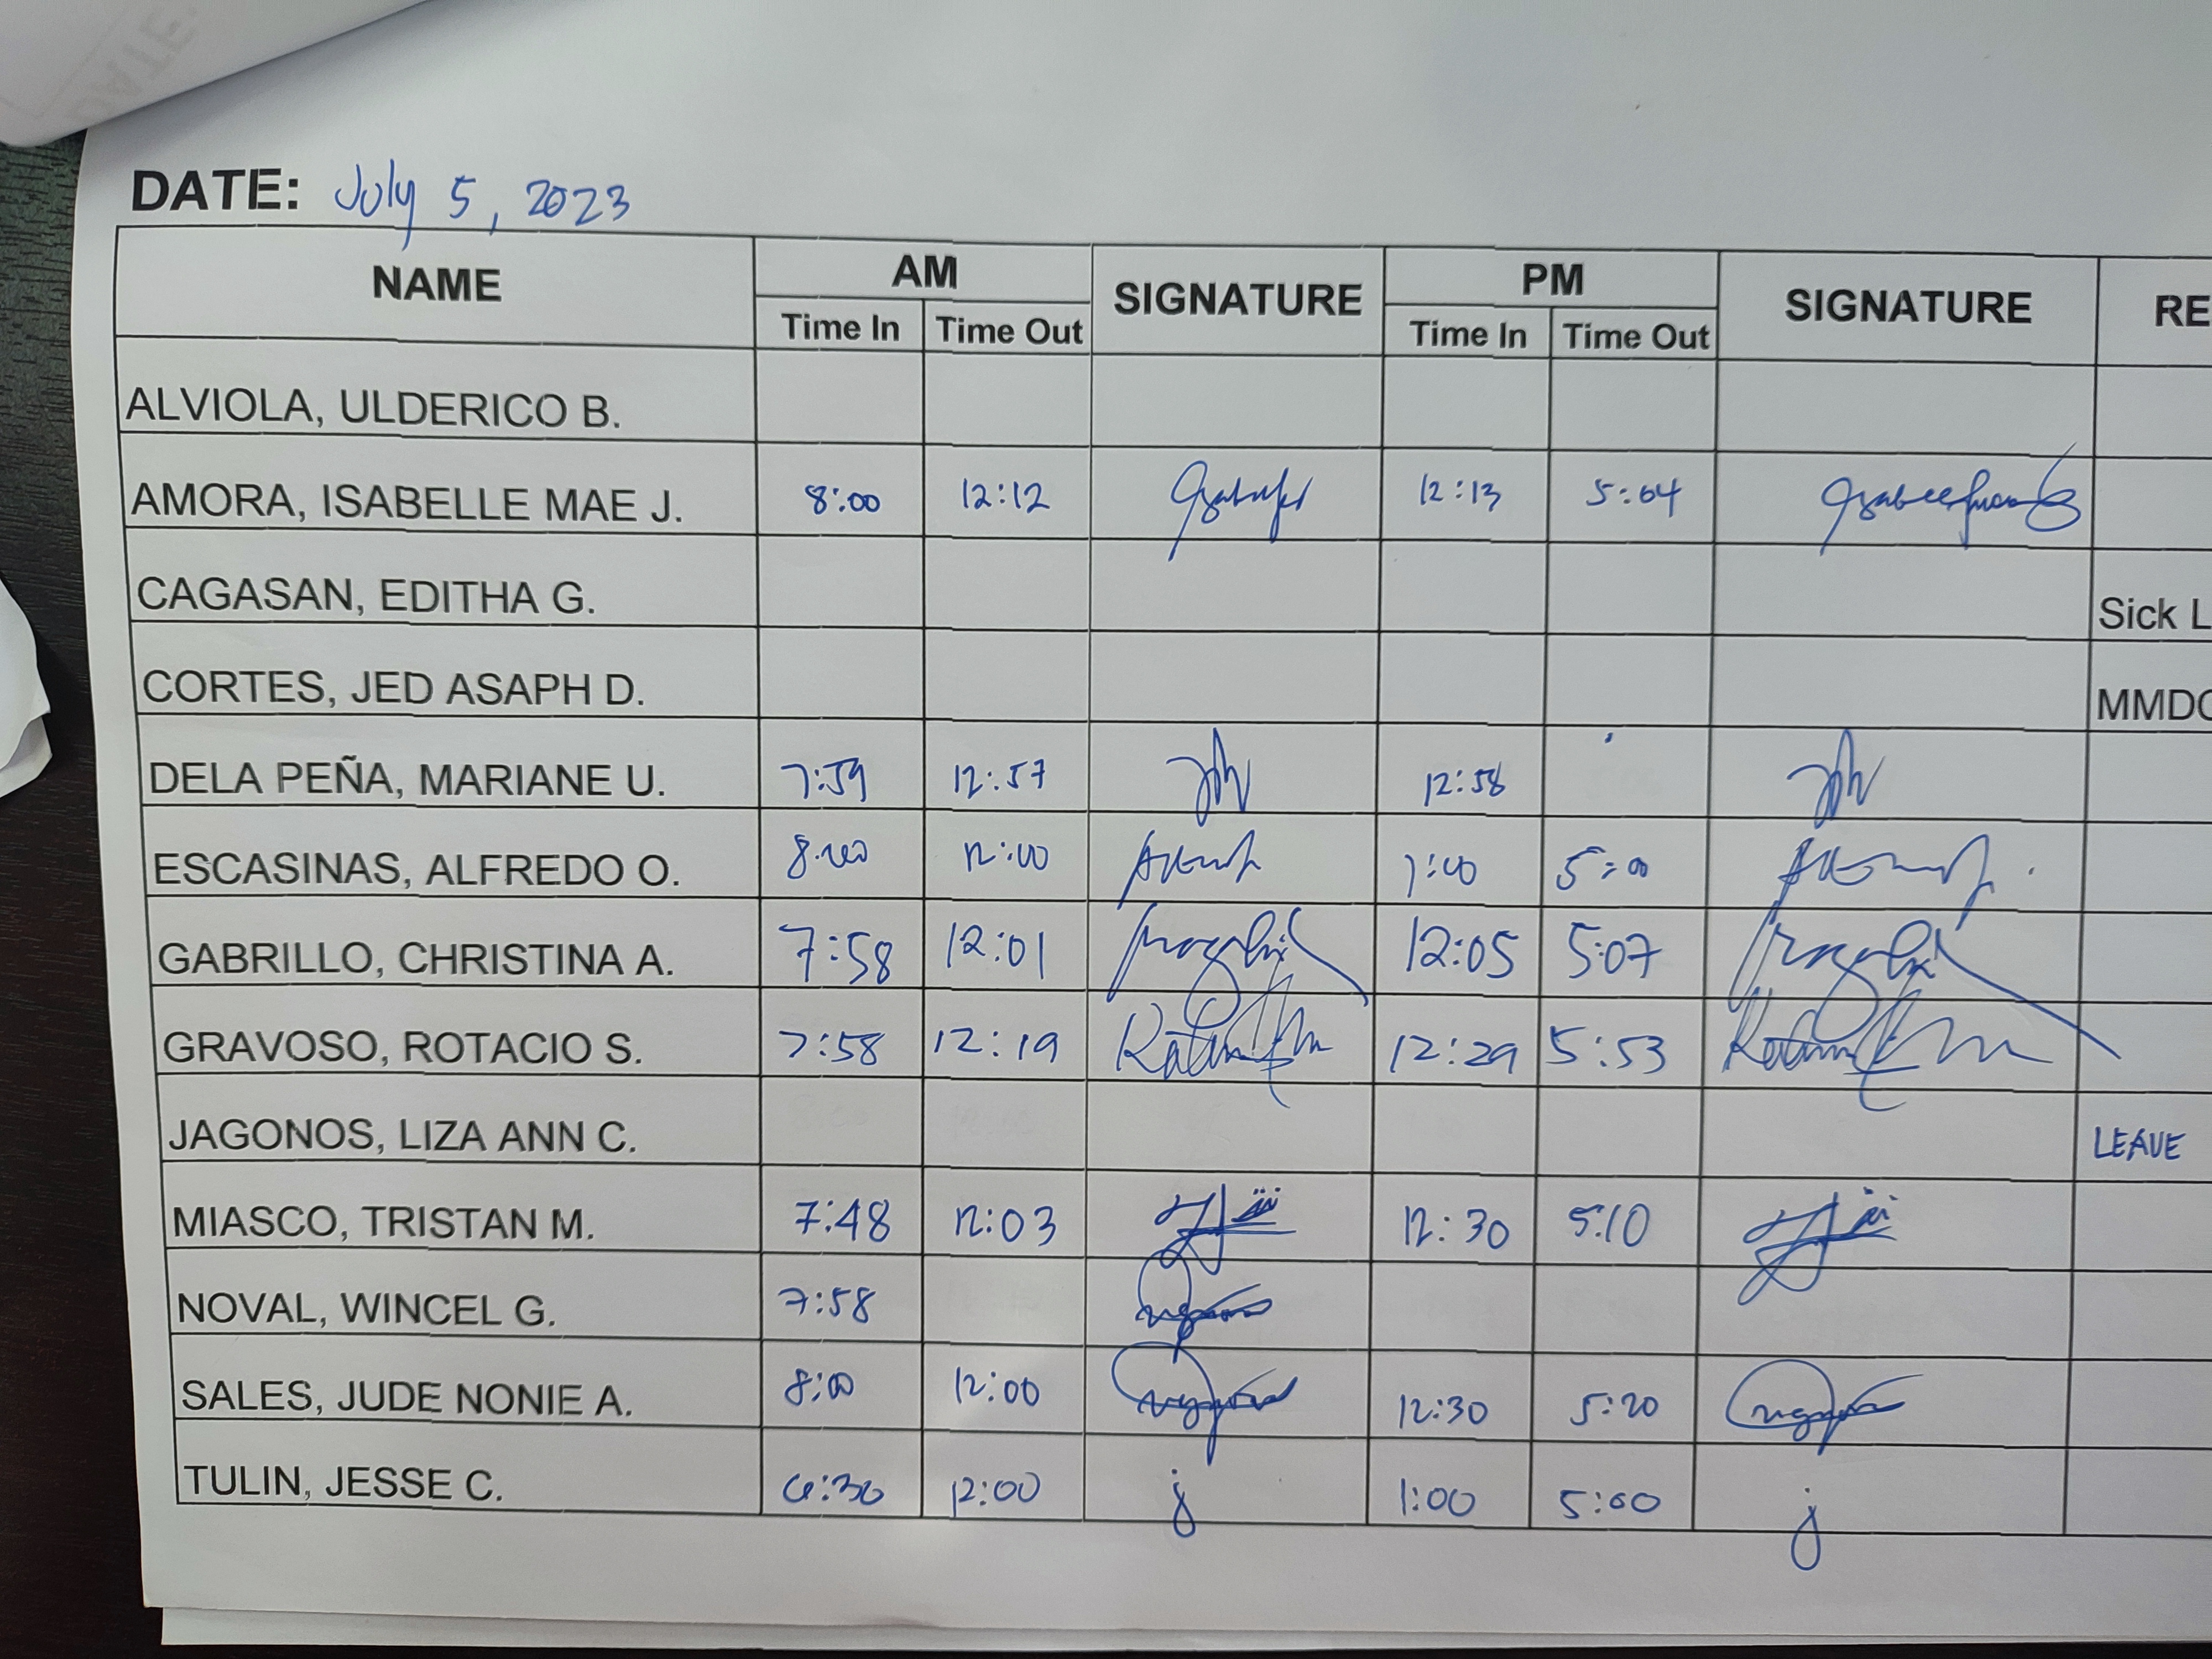 DATE:
DATE: July 5, 2023
NAME AM SIGNATURE PM SIGNATURE RE
Time In Time Out Time In Time Out
ALVIOLA, ULDERICO B.
AMORA, ISABELLE MAE J. 8:00 12:12 12:13 5:04
CAGASAN, EDITHA G. Sick L
CORTES, JED ASAPH D. MMDC
DELA PEÑA, MARIANE U. 7:59 12:57 12:58
ESCASINAS, ALFREDO O. 8:00 12:00 1:00 5:00
GABRILLO, CHRISTINA A. 7:58 12:01 12:05 5:07
GRAVOSO, ROTACIO S. 7:58 12:19 12:29 5:53
JAGONOS, LIZA ANN C. LEAVE
MIASCO, TRISTAN M. 7:48 12:03 12:30 5:10
NOVAL, WINCEL G. 7:58
SALES, JUDE NONIE A. 8:00 12:00 12:30 5:20
TULIN, JESSE C. 6:30 12:00 j 1:00 5:00 j